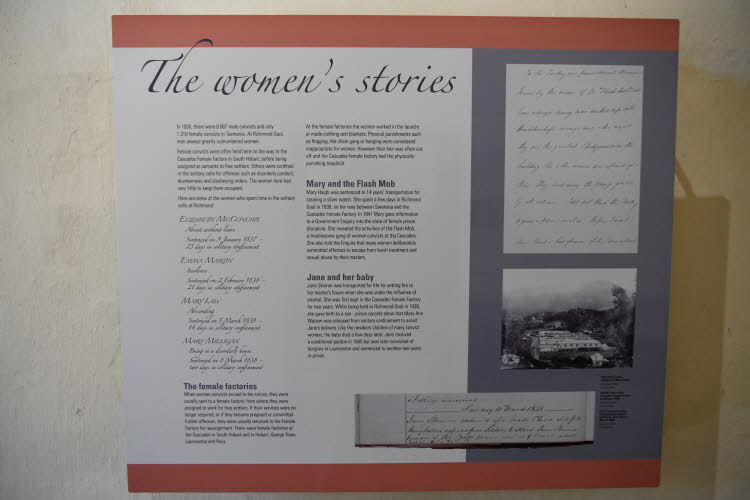 The women's stories
In 1830, there were 8 887 male convicts and only
1 318 female convicts in Tasmania. At Richmond Gaol,
men always greatly outnumbered women.
Female convicts were often held here on the way to the
Cascades Female Factory in South Hobart, before being
assigned as servants to free settlers. Others were confined
in the solitary cells for offences such as disorderly conduct,
drunkenness and disobeying orders. The women here had
very little to keep them occupied.
Here are some of the women who spent time in the solitary
cells at Richmond:
ELIZABETH MCCONCHIE
Absent without leave
Sentenced on 9 January 1837 –
25 days in solitary confinement
EMMA MARTIN
Insolence
Sentenced on 2 February 1838 –
21 days in solitary confinement
MARY LAW
Absconding
Sentenced on 5 March 1838 –
14 days in solitary confinement
MARY MILLIGAN
Being in a disorderly house
Sentenced on 8 March 1838 –
two days in solitary confinement
The female factories
When women convicts arrived in the colony, they were
usually sent to a female factory, from where they were
assigned to work for free settlers. If their services were no
longer required, or if they became pregnant or committed
further offences, they were usually returned to the Female
Factory for reassignment. There were female factories at
the Cascades in South Hobart and in Hobart, George Town,
Launceston and Ross.
At the female factories the women worked in the laundry
or made clothing and blankets. Physical punishments such
as flogging, the chain gang or hanging were considered
inappropriate for women. However their hair was often cut
off and the Cascades female factory had the physically-
punishing treadmill.
Mary and the Flash Mob
Mary Haigh was sentenced to 14 years' transportation for
stealing a silver watch. She spent a few days in Richmond
Gaol in 1838, on her way between Swansea and the
Cascades Female Factory. In 1841 Mary gave information
to a Government Enquiry into the state of female prison
discipline. She revealed the activities of the Flash Mob,
a troublesome gang of women convicts at the Cascades.
She also told the Enquiry that many women deliberately
committed offences to escape from harsh treatment and
sexual abuse by their masters.
Jane and her baby
Jane Skinner was transported for life for setting fire to
her master's house when she was under the influence of
alcohol. She was first kept in the Cascades Female Factory
for two years. While being held in Richmond Gaol in 1838,
she gave birth to a son - prison records show that Mary Ann
Watson was released from solitary confinement to assist
Jane's delivery. Like the newborn children of many convict
women, the baby died a few days later. Jane received
a conditional pardon in 1845 but was later convicted of
burglary in Launceston and sentenced to another two years
in prison.
Sunday 11 March 1838